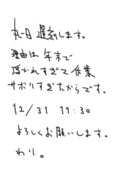 本日遅刻します。
理由は年末で
浮かれすぎて作業
サボりすぎたからです。
12/31 11:30
よろしくお願いします。
わり。